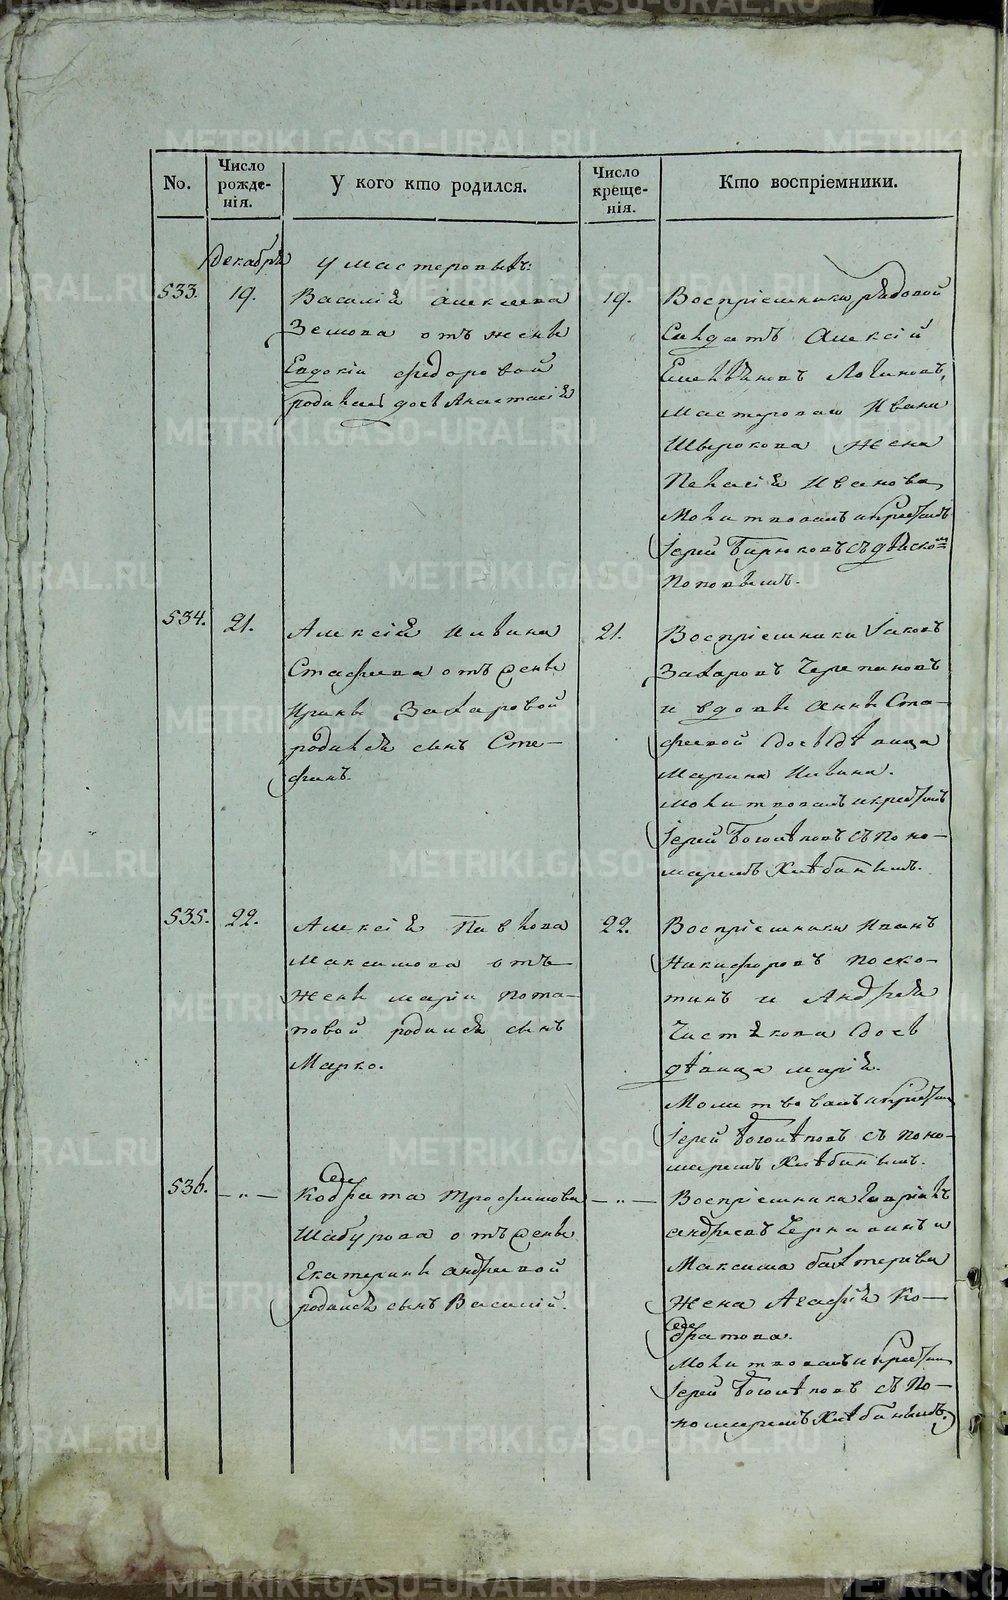 No.
Число рожде-нія.
У кого кто родился.
Число креще-нія.
Кто воспріемники.
Декабрѣ
У мастеровыхъ:
533.
19.
Василій Алексеева
Земова отъ жены
Евдокіи Федоровой
родилась дочь Анастасія
19.
Воспріемники рядовой
Салдатъ Алексій
Логиновъ,
мастероваго Ивана
Широкова жена
Пелагія Иванова
Молитвовалъ и крестилъ
Іерей Бирюковъ съ дьячко
Поповымъ.
534.
21.
Алексій Ивина
Стафеева отъ жены
Ирины Захаровой
родился сынъ Сте-
фанъ.
21.
Воспріемники Іаковъ
Захаровъ Черепановъ
и вдовы Анны Ста-
феевой дочь дѣвица
Марина Ивина.
молитвовалъ и крестилъ
Іерей Боголѣповъ съ поно-
маремъ Хлѣбинымъ.
535.
22.
Алексій Павлова
Максимова отъ
жены Маріи Пота-
повой родился сынъ
Марко.
22.
Воспріемники Иванъ
Никифоровъ Поско-
тинъ и Андрея
Чистякова дочь
дѣвица Марія.
Молитвовалъ и крестилъ
Іерей Боголѣповъ съ поно-
маремъ Хлѣбинымъ.
536.
— „ —
Кодрата Трофимова
Шабурова отъ жены
Екатерины Андреевой
родился сынъ Василій.
— „ —
Воспріемники Гавріилъ
Андреевъ Чернавинъ и
Максима Бахтерева
жена Агафія Ко-
дратова.
Молитвовалъ и крестилъ
Іерей Боголѣповъ съ По-
номаремъ Хлѣбинымъ.
METRIKI.GASO-URAL.RU